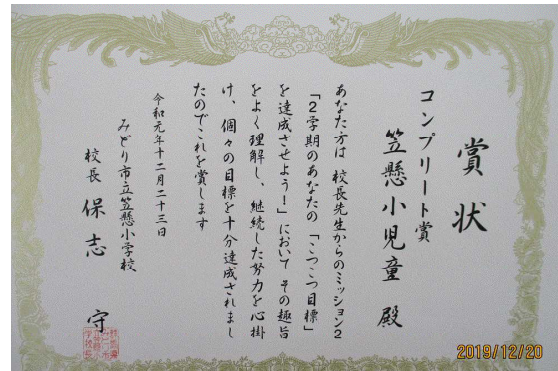 賞状
コンプリート賞
笠懸小児童 殿
あなた方は 校長先生からのミッション2
「2学期のあなたの「こつこつ目標」
を達成させよう!」において その趣旨
をよく理解し、継続した努力を心掛
け、個々の目標を十分達成されまし
たのでこれを賞します
令和元年十二月二十三日
みどり市立笠懸小学校
校長 保志 守
2019/12/20